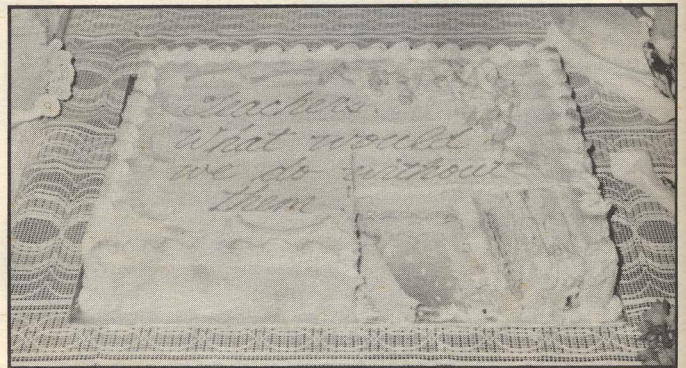 Teachers.
What would
we do without
them